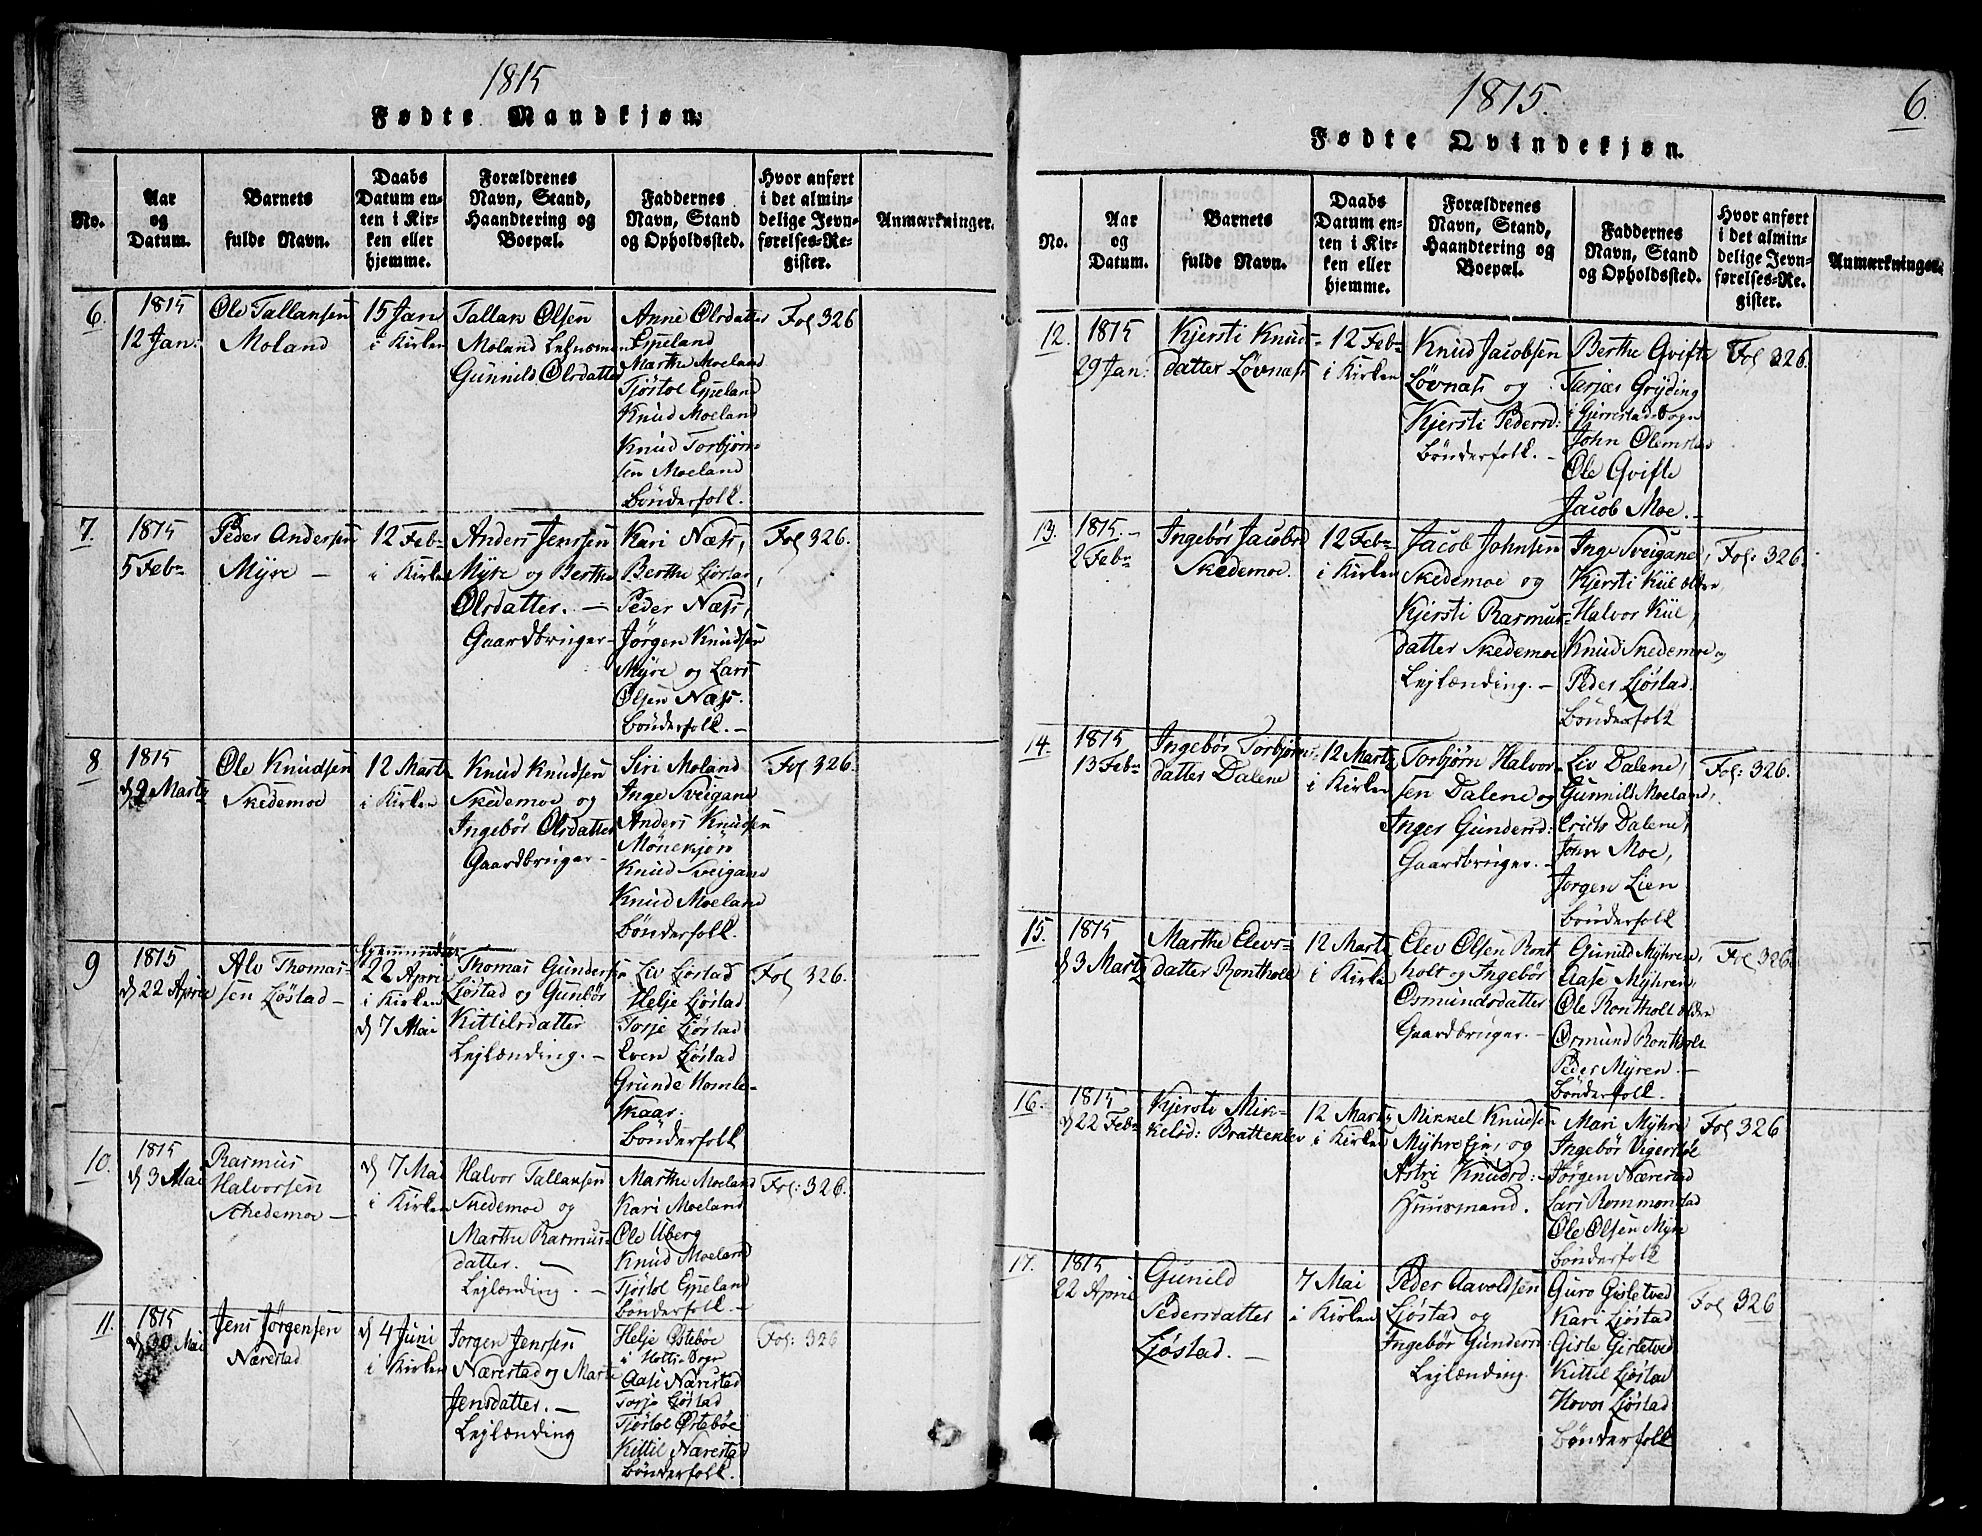 1815
Fødte Mandkjøn.
No.
Aar
og
Datum.
Barnets
fulde Navn.
Daabs
Datum en-
ten i Kir-
ken eller
hjemme.
Forældrenes
Navn, Stand,
Haandtering og
Boepæl.
Faddernes
Navn, Stand
og Opholdssted.
Hvor anført
i det almin-
delige Jevn-
førelses-Re-
gister.
Anmærkninger.
6.
1815
12 Jan:
Ole Tallansen
Moland
15 Jan
i Kirken
Tallan Olsen
Moland Lehnsmen
Gunnild Olsdatter
Anne Olsdatter
Eppeland
Marthe Moeland
Tjøstol Eppeland
Knud Moeland
Knud Torbjørn-
sen Moeland
Bønderfolk.
Fol 326
7.
1815
5 Feb
Peder Andersen
Myre —
12 Feb
i Kirken
Anders Jenssen
Myre og Berthe
Olsdatter. —
Gaardbruger —
Kari Næss,
Berthe Ljøstad,
Peder Næss,
Jørgen Knudsen
Myre og Lars
Olsen Næss.
Bønderfolk. —
Fol 326.
8
1815
d 9 Marty
Ole Knudsen
Skedemoe
12 Mart
i Kirken
Knud Knudsen
Skedemoe og
Ingebør Olsdatter
Gaardbruger —
Siri Moland
Inge Sveigane
Anders Knudsen
Mønekjøn
Knud Sveigane
Knud Moeland
Bønderfolk.
Fol 326.
9
1815
d 22 April
Alv Thomas-
sen Ljøstad —
22 April
i Kirken
d 7 Mai
Thomas Gunders
Ljøstad og Gunbør
Kittilsdatter
Lejlænding. —
Liv Ljøstad
Helje Ljøstad
Torje Ljøstad
Even Ljøstad
Grunde Homle-
skaar.
Bønderfolk
Fol 326.
10.
1815
d 3 Mai
Rasmus
Halvorsen
Skedemoe —
d 7 Mai
i Kirken
Halvor Tallansen
Skedemoe og
Marthe Rasmus-
datter. —
Lejlænding. —
Marthe Moeland
Kari Moeland
Ole Uberg
Knud Moeland
Tjøstol Eppeland
Bønderfolk —
Fol: 326.
11.
1815
d 30 Mai
Jens Jørgensen
Nærestad
d 4 Juni
i Kirken
Jørgen Jenssen
Nærestad og Marte
Jensdatter. —
Lejlænding
Helje Østebøe
i Holts Sogn
Aase Nærestad
Torje Ljøstad
Tjøstol Østebøe
Kittil Nærestad
Bønderfolk.
Fol: 326
1815.
6.
Fødte Qvindekjøn.
No.
Aar
og
Datum.
Barnets
fulde Navn.
Daabs
Datum en-
ten i Kir-
ken eller
hjemme.
Forældrenes
Navn, Stand,
Haandtering og
Boepæl.
Faddernes
Navn, Stand
og Opholdssted.
Hvor anført
i det almin-
delige Jevn-
førelses-Re-
gister.
Anmærkninger.
12.
1815
29 Jan:
Kjersti Knud-
datter Løvnass
12 Feb
i Kirken
Knud Jacobsen
Løvnass og
Kjersti Pedersd:
Bønderfolk. —
Berthe Gvifte
Tarjæs Gryding
i Gjerrestad Sogn
John Olemstad
Ole Gvifte
Jacob Moe. —
Fol 326.
13.
1815. —
2 Feb
Ingebør Jacobsd
Skedemoe.
12 Feb
i Kirken
Jacob Johnsen
Skedemoe og
Kjersti Rasmus-
datter Skedemoe
Lejlænding. —
Inge Sveigane,
Kjersti Kül ældre,
Halvor Kül,
Knud Skedemoe og
Peder Ljøstad.
Bønderfolk
Fol: 326.
14.
1815
13 Feb
Ingebør Torbjørns
datter Dalene
12 Mart
i Kirken
Torbjørn Halvor-
sen Dalene og
Inger Gundersd:
Gaardbruger. —
Liv Dalene,
Gunnild Moeland,
Erich Dalene,
John Moe,
Jørgen Lien
Bønderfolk
Fol: 326.
15.
1815
d 3 Marty
Marthe Elevs-
datter Rontholt
12 Mart
i Kirken
Elev Olsen Ront
holt og Ingebør
Osmundsdatter
Gaardbruger. —
Gunild Myhren,
Aase Myhren,
Ole Rontholt ældre
Osmund Rontholt
Peder Myren. —
Bønderfolk.
Fol 326.
16.
1815
d 22 Feb
Kjersti Mik-
kelsd: Bratteklev
12 Mart
i Kirken
Mikkel Knudsen
Myhre Eje, og
Astri Knudsd: —
Huusmand.
Mari Myhre
Ingebør Vigerstøl
Jørgen Nærestad
Lars Rommonstad
Ole Olsen Myre
Bønderfolk
Fol 326
17.
1815
22 April
Gunild
Pedersdatter
Ljøstad. —
7 Mai
i Kirken
Peder Aavoldsen
Ljøstad og
Ingebør Gundersd:
Lejlænding
Guro Gisletved
Kari Ljøstad
Gisle Gisletved
Kittil Ljøstad
Hovor Ljøstad
Bønderfolk
Fol 326